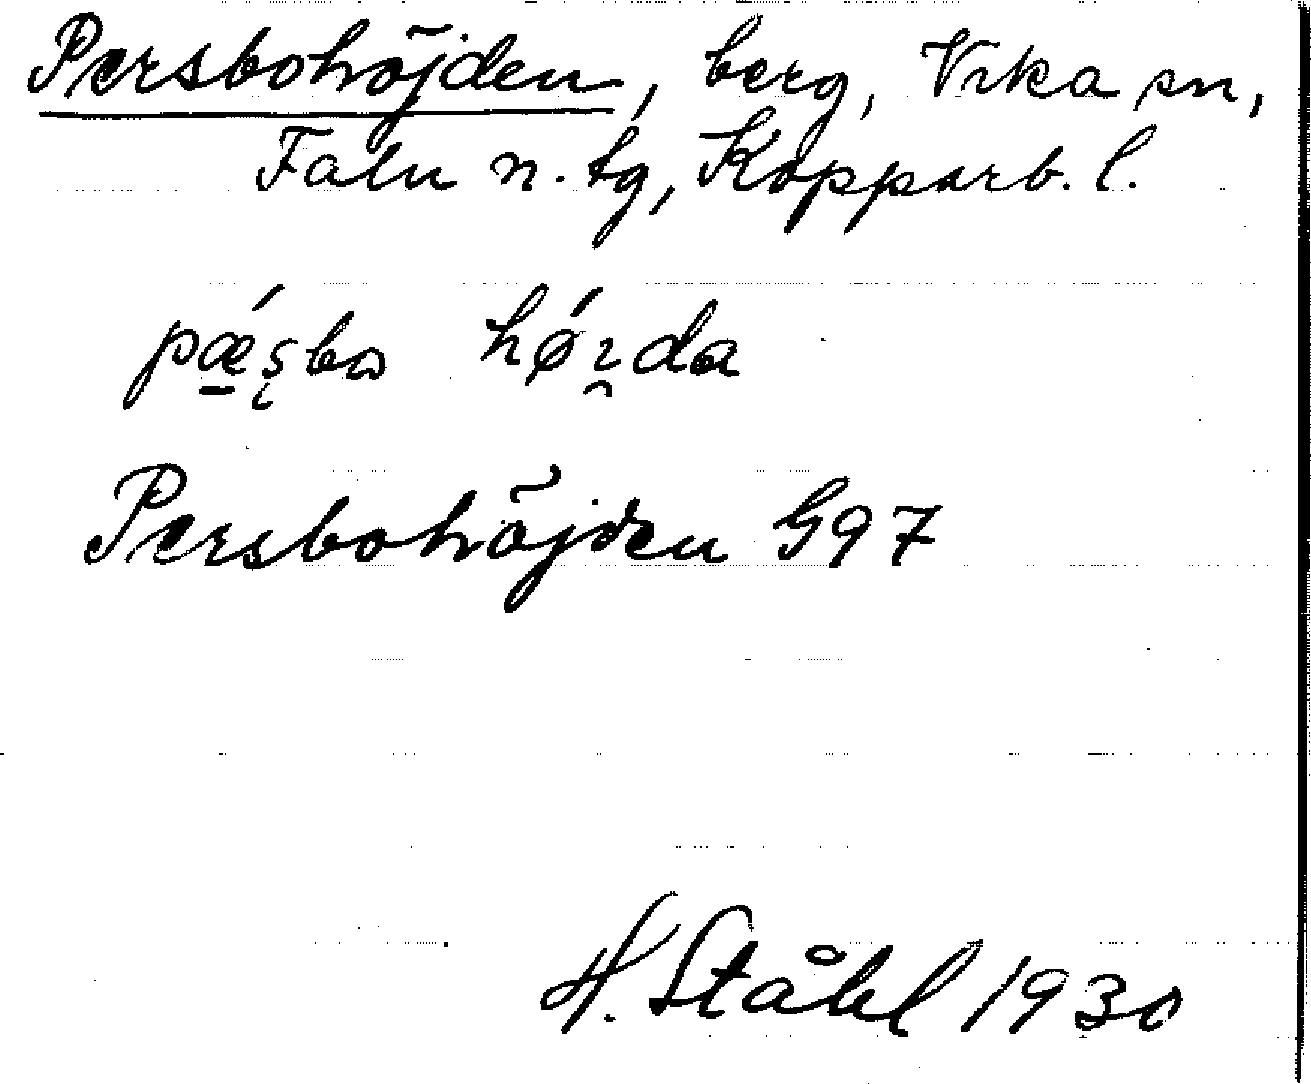 Persbohöjden, berg, Vika sn,
Falu n. tg, Kopparb. l.
pǽ̱ʂbo hǿı̯da
Persbohöjden G97
H. Ståhl 1930